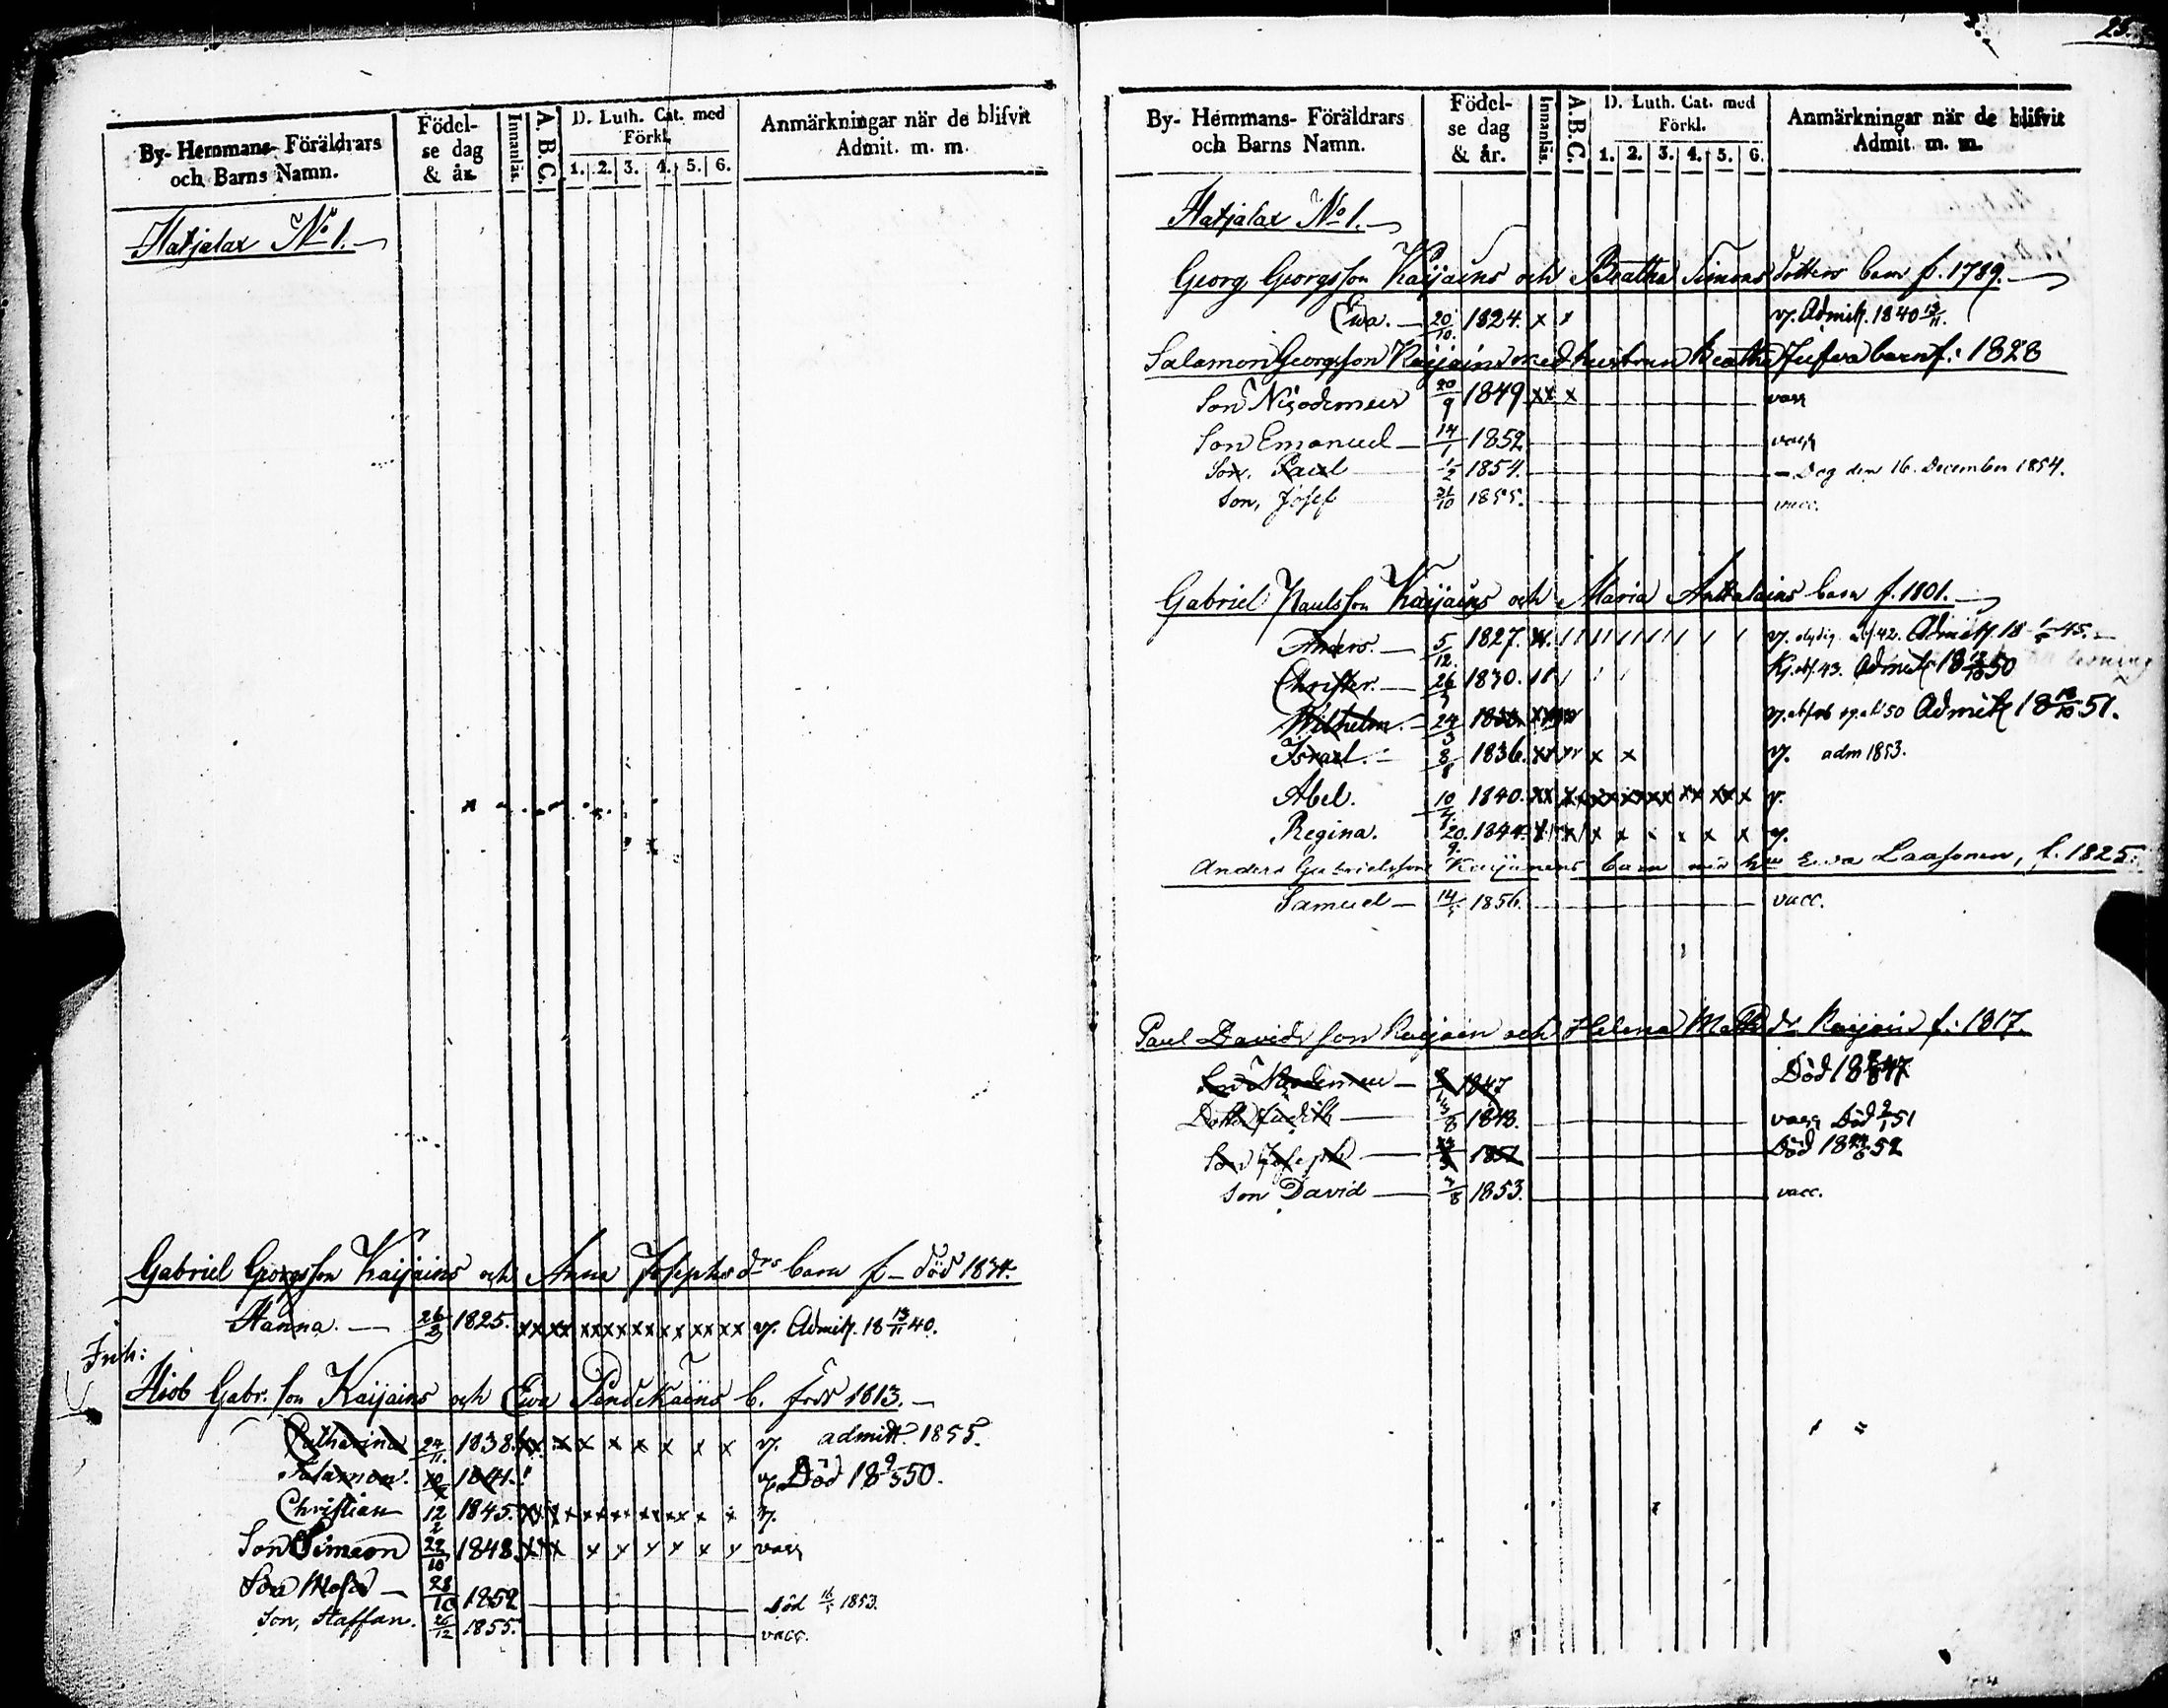 By- Hemmans- Föräldrars och Barns Namn.
Födelse dag & år.
Innanläs.
A. B. C.
D. Luth. Cat. med Förkl.
1. 2. 3. 4. 5. 6.
Anmärkningar när de blifvit Admit. m. m.
Hatjalax No 1.
Gabriel Georgsson Kaijains och Anna Josephsdrs barn f— död 1834.
Hanna. — 26/2 1825. xx xx xx xx xx xx xx xx v. Admitt. 18 13/11 40.
Inh:
Hiob Gabr. son Kaijains och Ewa Pendikains b. född 1813. —
Catharina 24/11. 1838. v. admitt. 1855.
Salamon. 1841. v. Död 18 50.
Christian 12/2 1845. v.
Son Simeon 22/10 1848. vacc
Son Moses — 28/10 1852 död 16/5 1853.
Son, Staffan. 26/12 1855. vacc.
25.
By- Hemmans- Föräldrars och Barns Namn.
Födelse dag & år.
Innanläs.
A. B. C.
D. Luth. Cat. med Förkl.
1. 2. 3. 4. 5. 6.
Anmärkningar när de blifvit Admit. m. m.
Hatjalax No 1.
Georg Georgsson Kaijains och Beatha Simonsdotters barn f. 1789.
Ewa. — 20/10. 1824. x x v. Admitt. 1840 13/11.
Salamon Georgsson Kaijains med hustrun Beatha barn f: 1828
Son Nicodemus 20/9 1849 xx x vacc
Son Emanuel — 14/1 1852 vacc
Son. Paul 1/2 1854. — Dog den 16. December 1854.
Son, Josef 31/10 1855. vacc.
Gabriel Paulsson Kaijains och Maria Anttalains barn f. 1801.
Anders. — 5/12. 1827. v. Admitt. 18 45. —
Christer. — 26 1830. 43. Admitt 18 50
Wilhelm. — 24/3 50 Admitt 18 18/10 51.
Israel. — 8/8 1836. v. adm 1853.
Abel. 10 1840. v.
Regina. 20/9. 1844. v.
Anders Gabrielsson Kaijanens barn med hu Ewa Laasonen, f. 1825.
Samuel — 14 1856. vacc.
Paul Davidsson Kaijain och Helena Matts dr Kaijain f: 1817.
Son Nicodemus — 1847 Död 18 47
Dotter Judith — 1848. vacc Död 9/1 51
Son Joseph — 1852 Död 18 52
Son David — 7/8 1853. vacc.